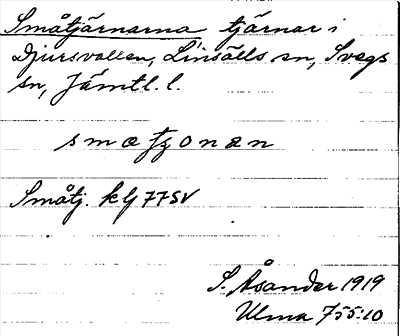 Småtjärnarna tjärnar i
Djursvallen, Linsälls sn, Svegs
sn, Jämtl. l.
smatzonan
Småtj. kbf 77 SV
S. Åsander 1919
Ulma 755:10